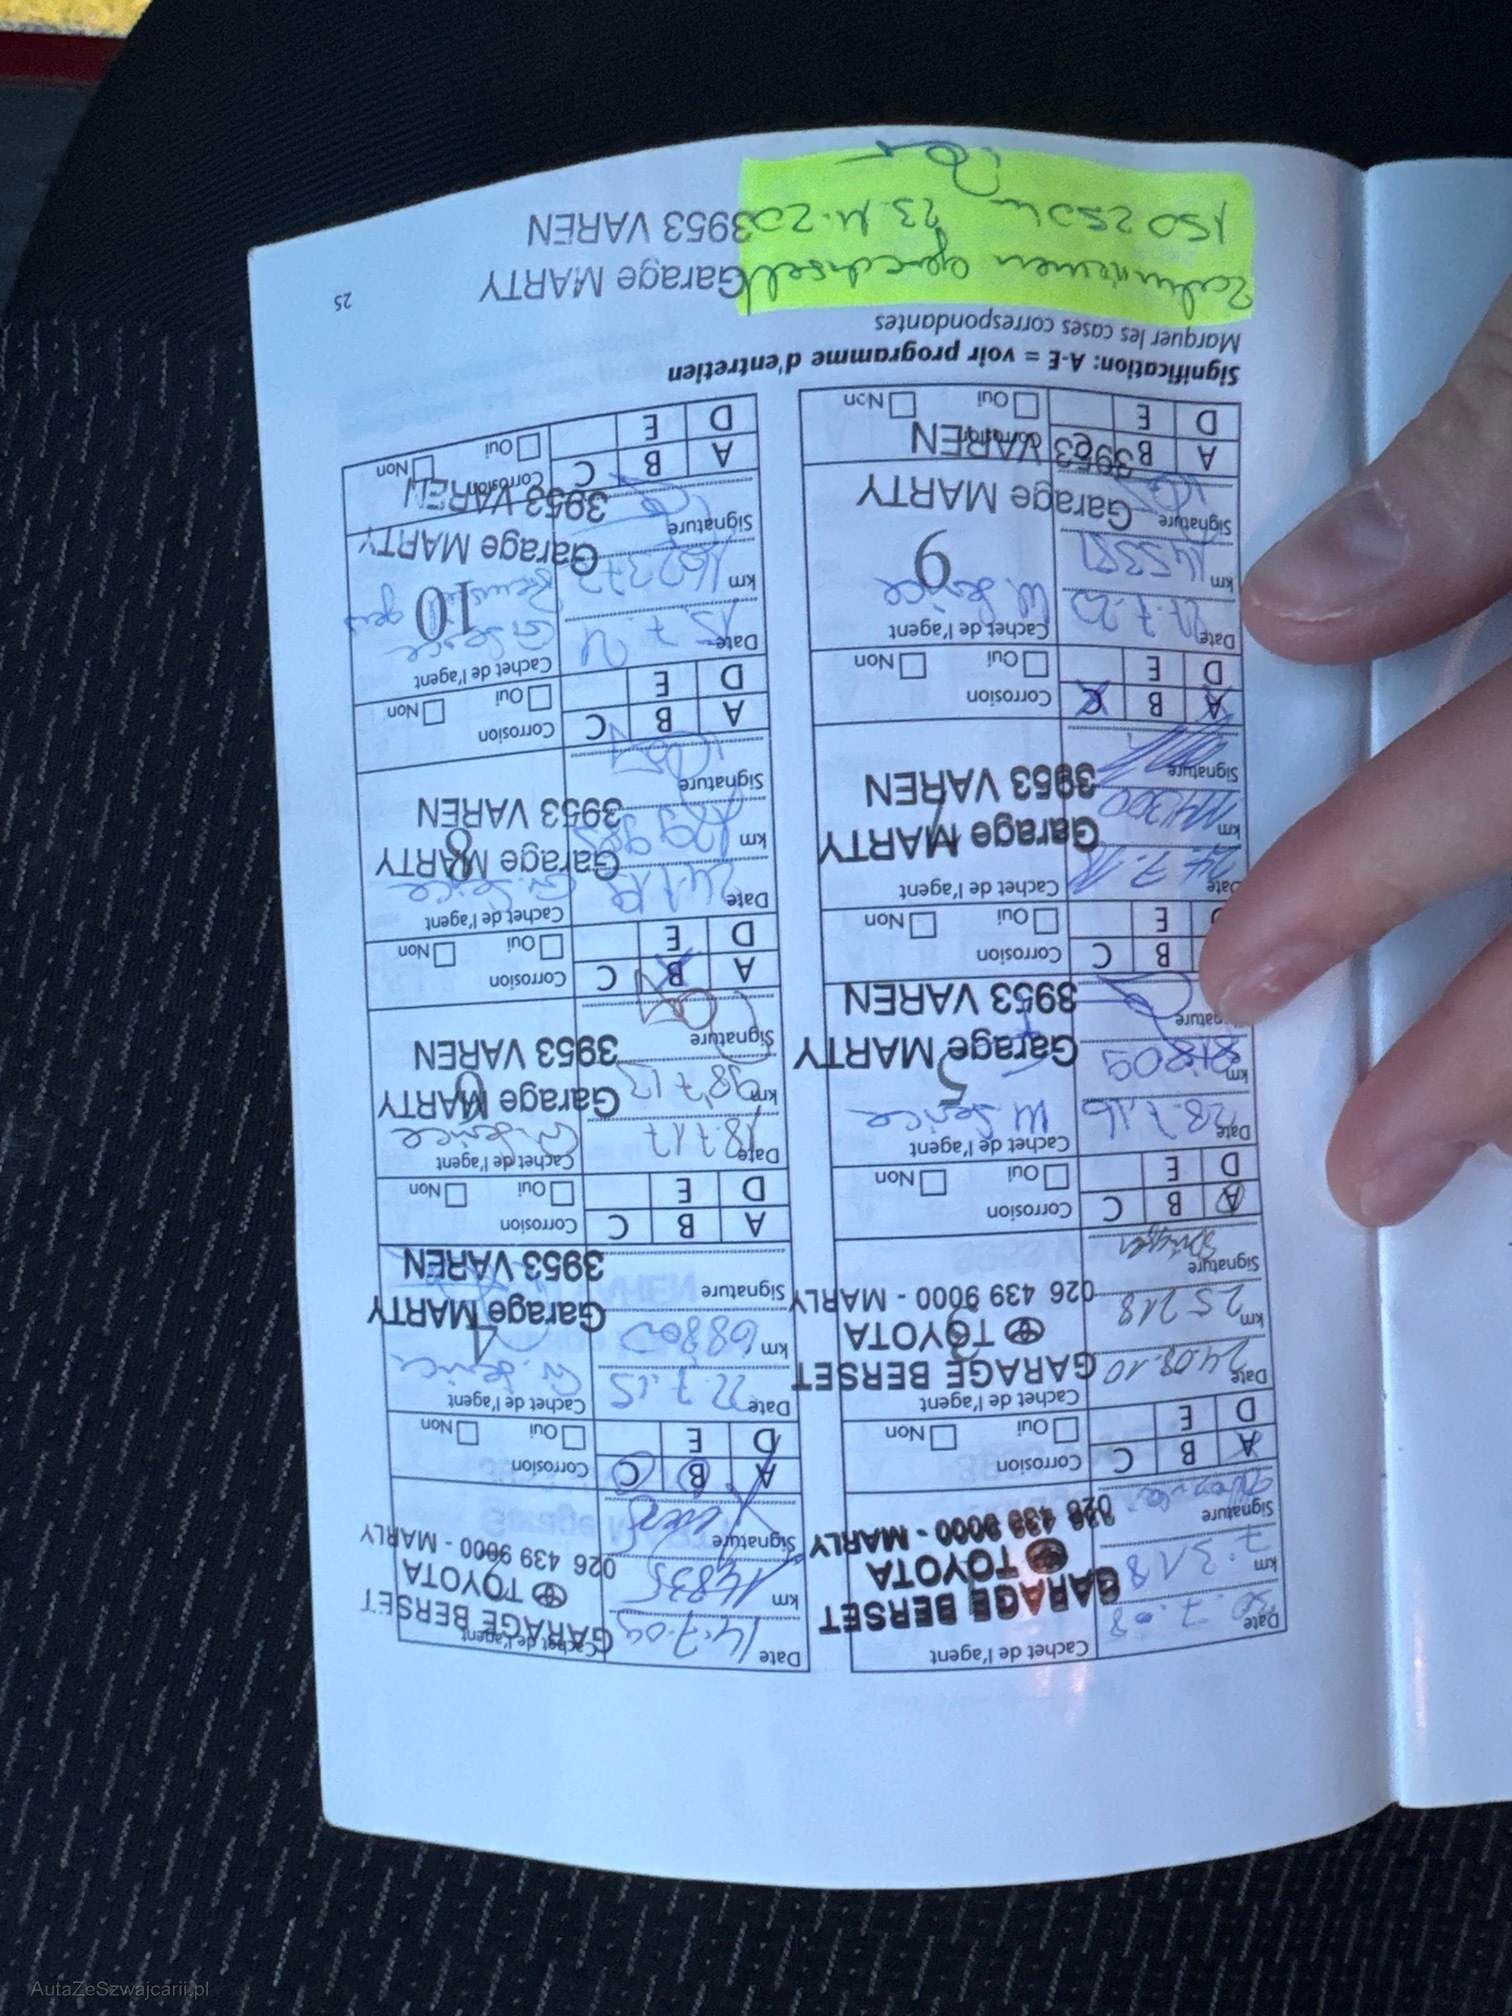 Date 30.7.08
km 7.318
Signature
Cachet de l'agent
GARAGE BERSET
TOYOTA
026 439 9000 - MARLY
A B C
D E
Corrosion
Oui Non
Date 14.7.09
km 14835
Signature
Cachet de l'agent
GARAGE BERSET
TOYOTA
026 439 9000 - MARLY
A B C
D E
Corrosion
Oui Non
Date 24.08.10
km 25218
Signature
Cachet de l'agent
GARAGE BERSET
TOYOTA
026 439 9000 - MARLY
A B C
D E
Corrosion
Oui Non
Date 22.7.15
km 68800
Signature
Cachet de l'agent
4
Garage MARTY
3953 VAREN
A B C
D E
Corrosion
Oui Non
Date 28.7.16
km
Signature
Cachet de l'agent
5
Garage MARTY
3953 VAREN
B C
E
Corrosion
Oui Non
Date 18.7.17
km 98713
Signature
Cachet de l'agent
6
Garage MARTY
3953 VAREN
A B C
D E
Corrosion
Oui Non
Date 24.7.18
km 114300
Signature
Cachet de l'agent
7
Garage MARTY
3953 VAREN
A B C
D E
Corrosion
Oui Non
Date
km
Signature
Cachet de l'agent
8
Garage MARTY
3953 VAREN
A B C
D E
Corrosion
Oui Non
Date 21.7.20
km
Signature
Cachet de l'agent
9
Garage MARTY
3953 VAREN
A B
D E
Corrosion
Oui Non
Date 15.7.21
km 162373
Signature
Cachet de l'agent
10
Garage MARTY
3953 VAREN
A B C
D E
Corrosion
Oui Non
Signification: A-E = voir programme d'entretien
Marquer les cases correspondantes
25
Zahnriemen
150 250
Garage MARTY
3953 VAREN
AutaZeSzwajcarii.pl